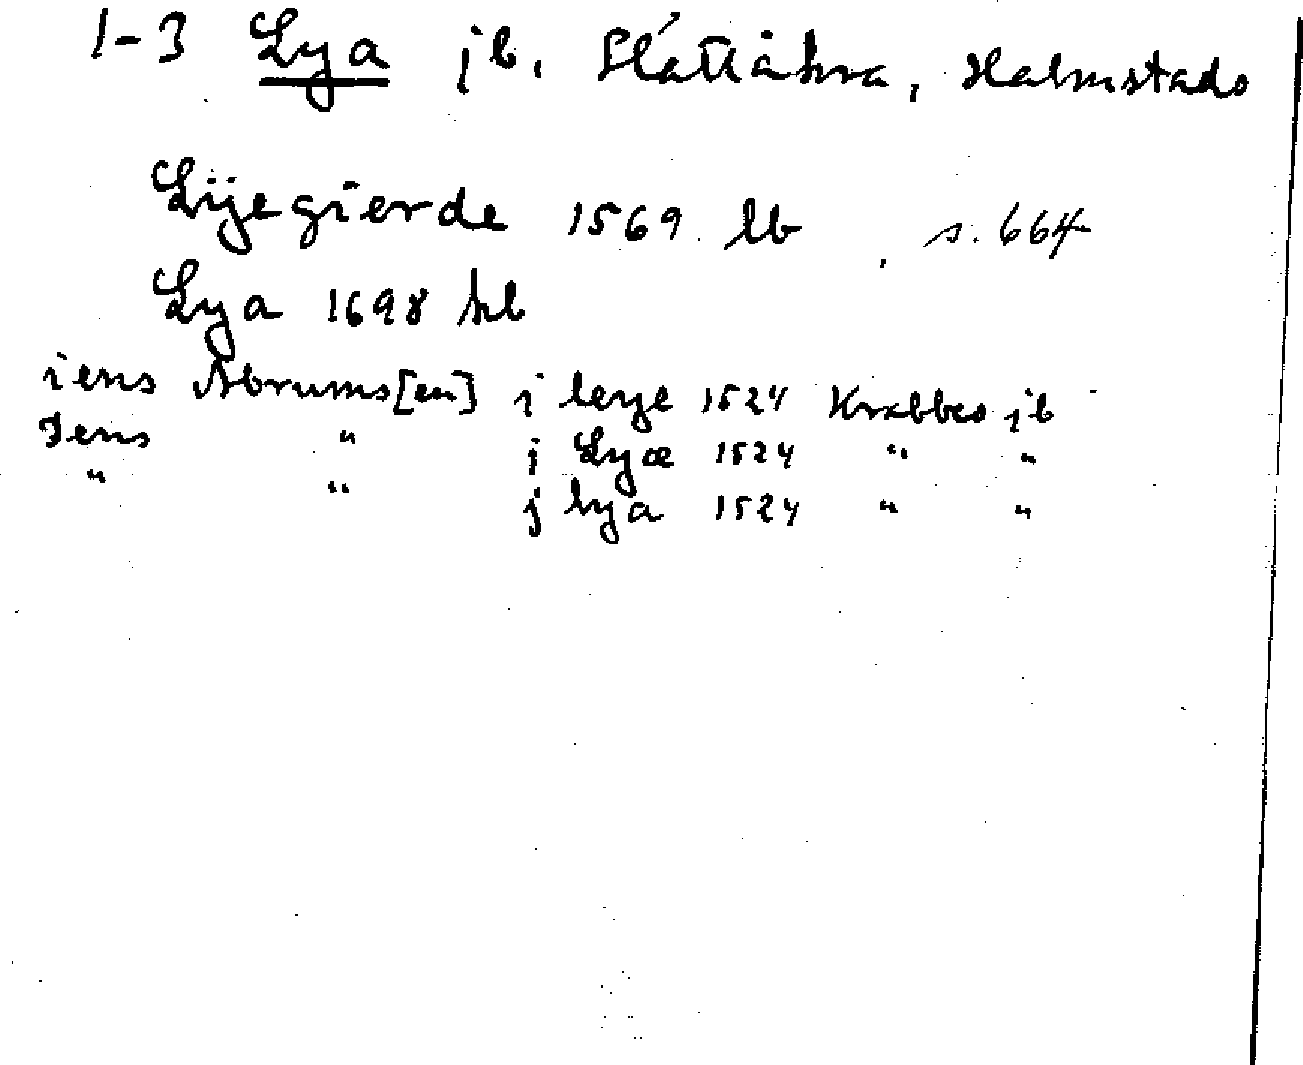 1-3 Lya jb. Slättåkra, Halmstads
Lÿegierde 1569 lb s. 664
Lya 1698 hb
iens Abrums[en] i leye 1524 Krabbes jb
Jens " j Lyæ 1524 " "
" " j lya 1524 " "